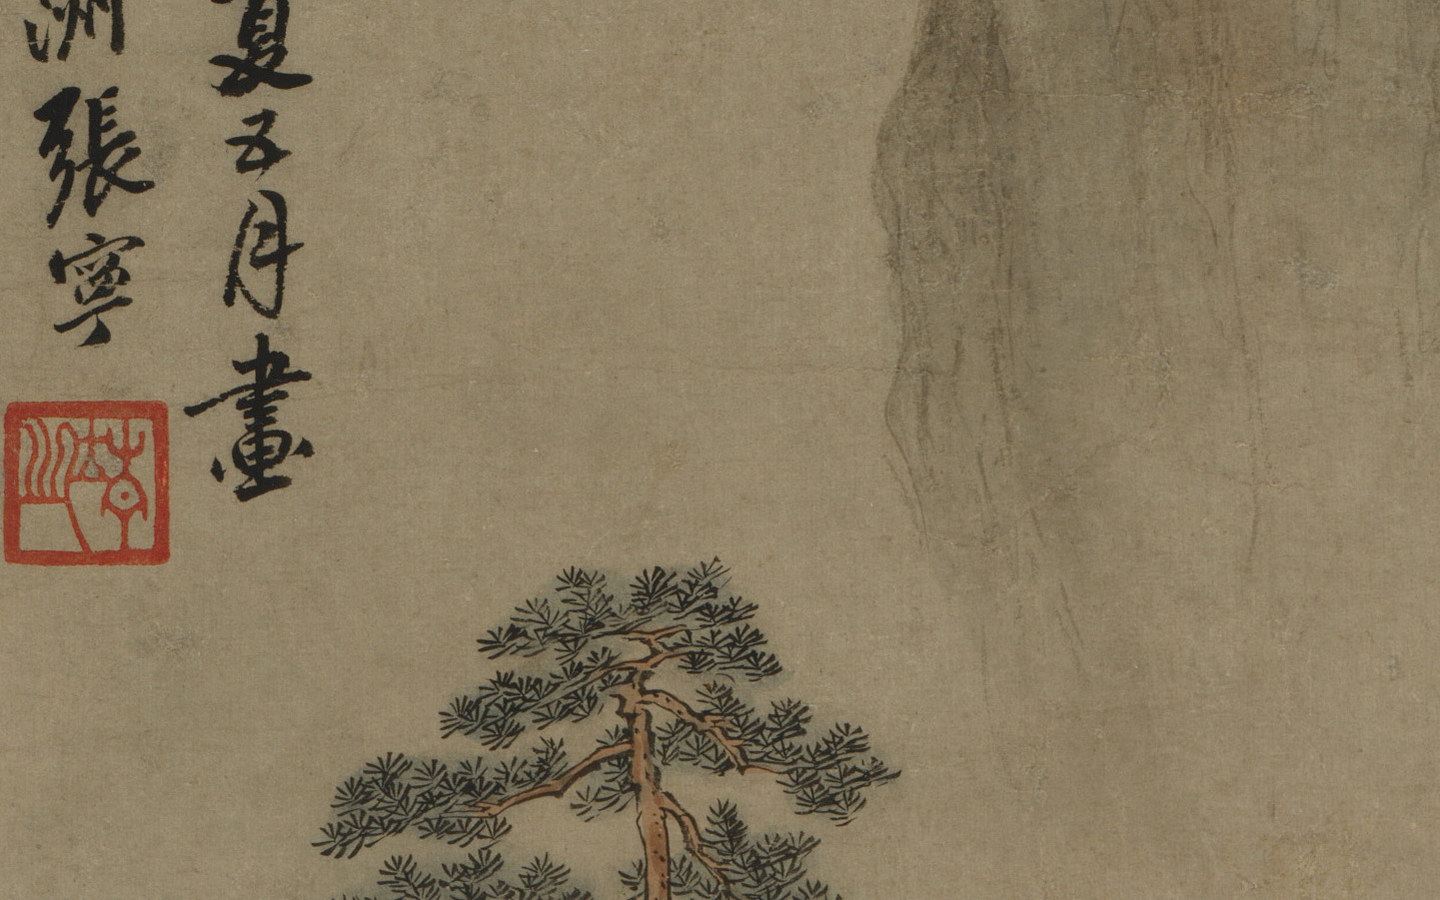 夏五月畫
洲張寧